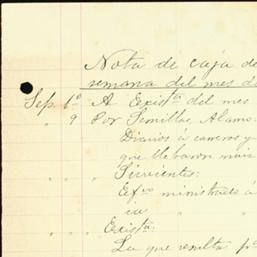 Nota de caja de
semana del mes d
Sep. 1º A Existª del mes
" 9 Por Semillas, Alamo
Diarios á carreros y
que llebaron mais
Sirvientes:
Eefvo ministrado á
ria " "
Existª:
La que resulta pª